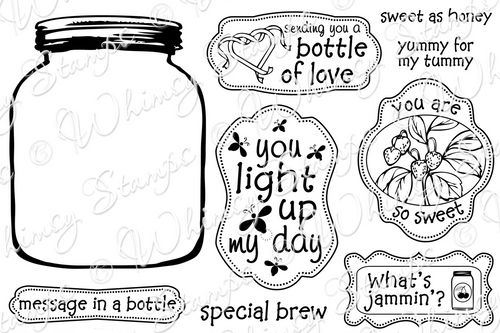 sending you a
bottle
of love
sweet as honey
yummy for
my tummy
you
light
up
my day
you are
so sweet
What's
jammin'?
message in a bottle
special brew
Whimsy Stamps